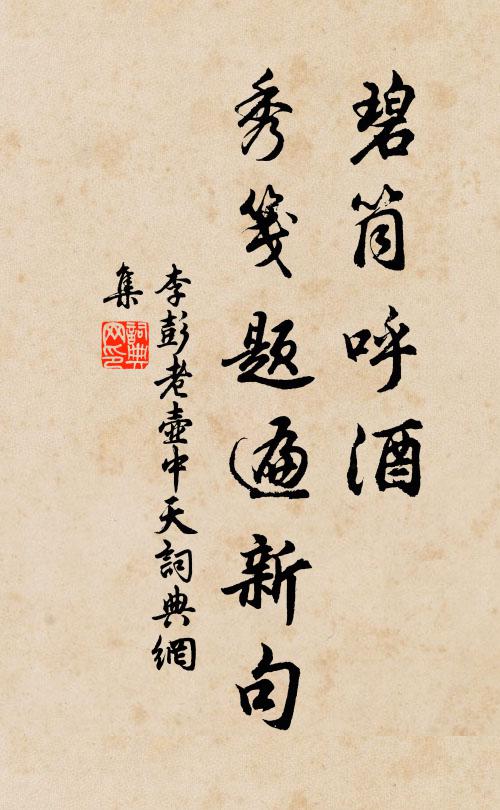 碧筒呼酒
秀箋題遍新句
李彭老壺中天詞典網
集
詞典
网印